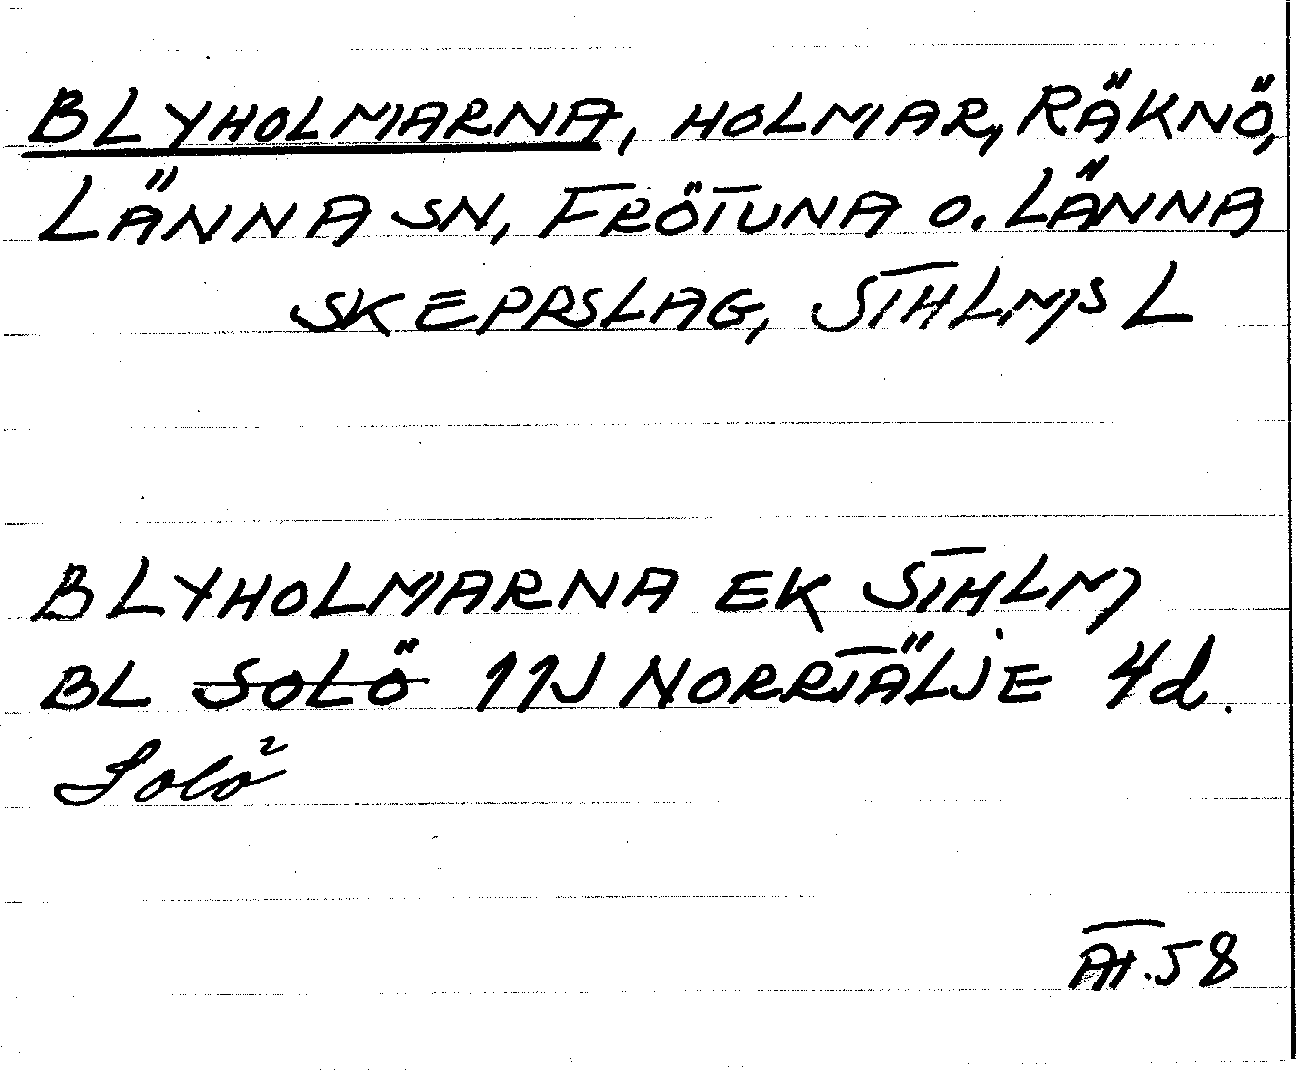 BLYHOLMARNA, HOLMAR, RÄKNÖ,
LÄNNA SN, FRÖTUNA O. LÄNNA
SKEPPSLAG, STHLMS L
BLYHOLMARNA EK STHLM
BL SOLÖ 11J NORRTÄLJE 4d.
Solö
AT.58